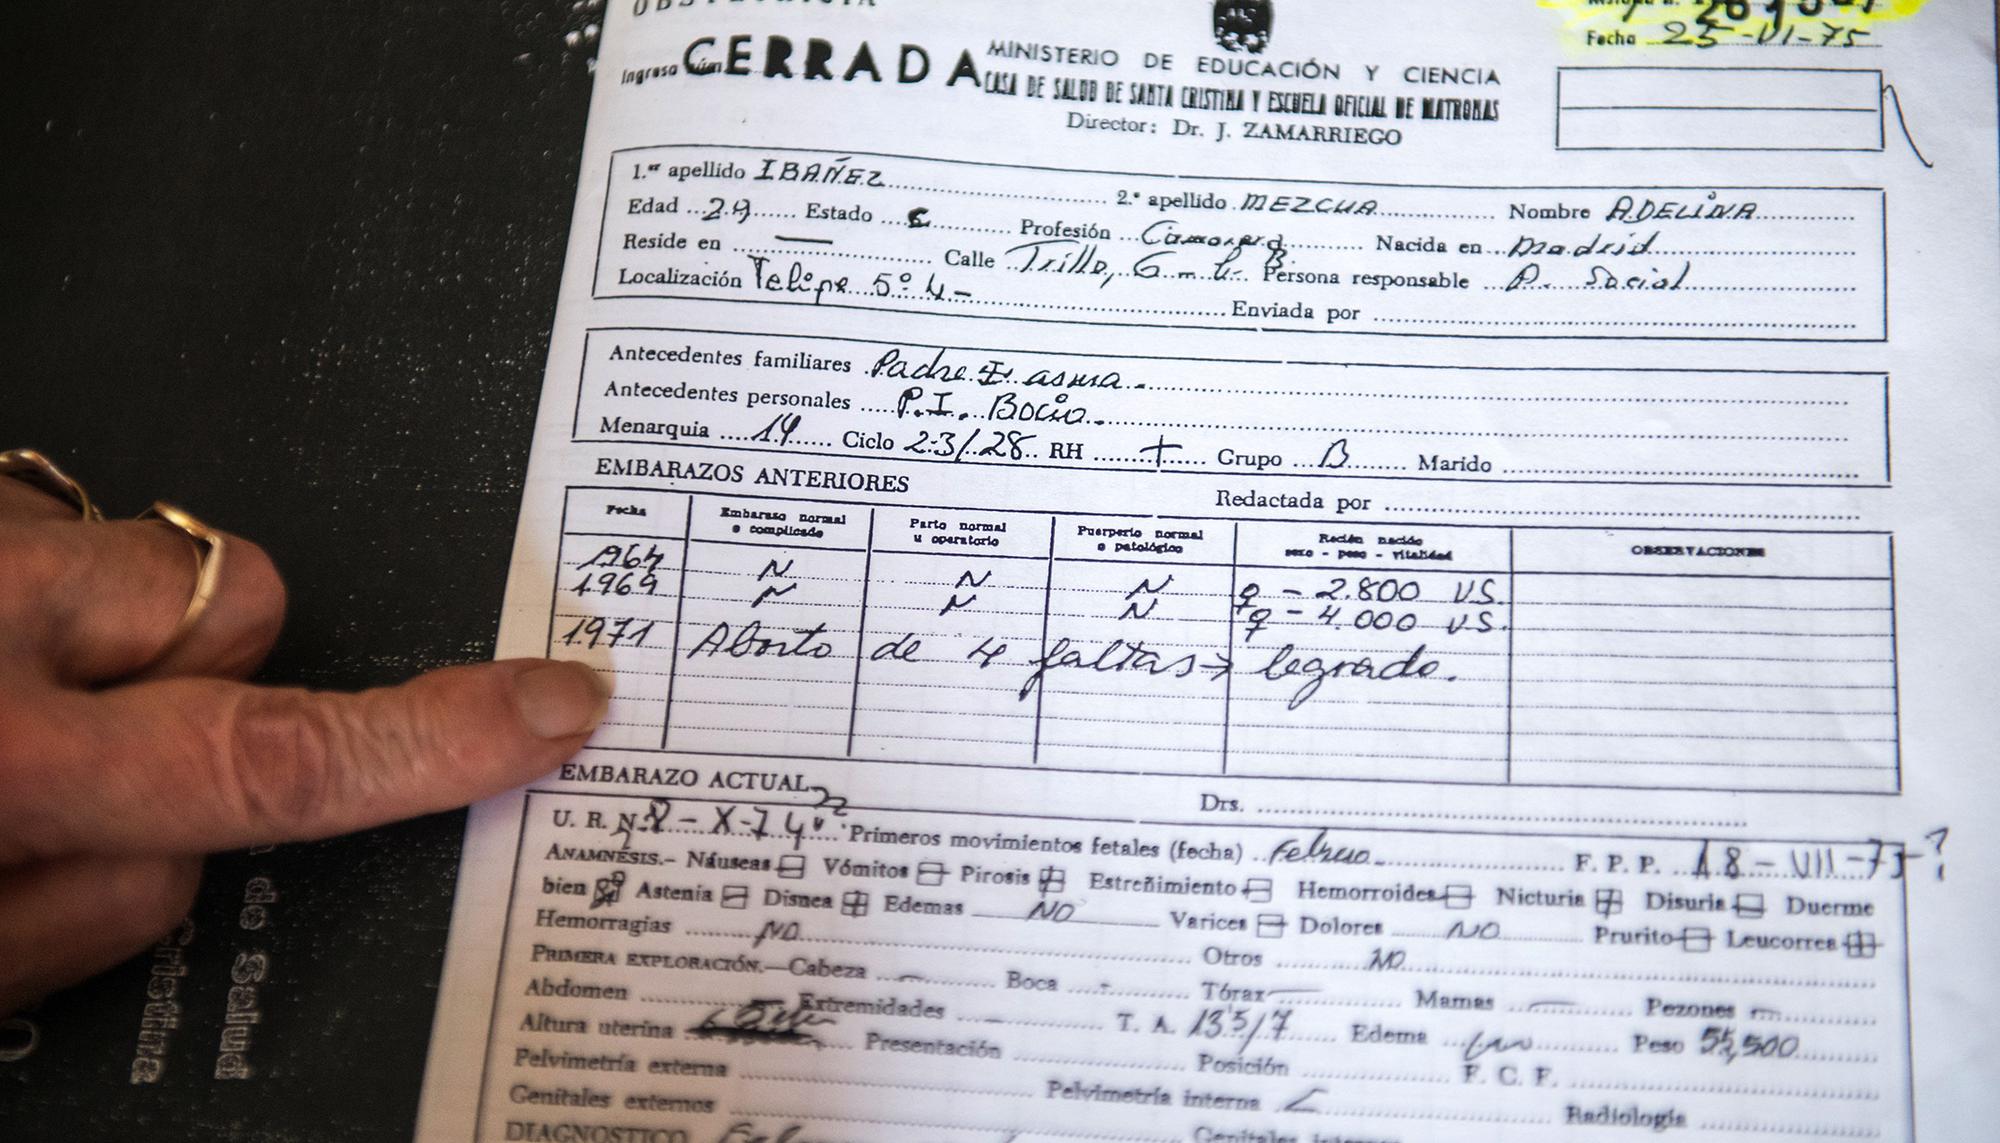 OBSTETRICIA
Fecha 25-VI-75
Ingreso núm.
CERRADA
MINISTERIO DE EDUCACIÓN Y CIENCIA
CASA DE SALUD DE SANTA CRISTINA Y ESCUELA OFICIAL DE MATRONAS
Director: Dr. J. ZAMARRIEGO
1.er apellido IBAÑEZ 2.º apellido MEZCUA Nombre ADELINA
Edad 29 Estado Profesión Camarera Nacida en Madrid
Reside en — Calle Trillo, Persona responsable A. Social
Localización Felipe 5º 4- Enviada por
Antecedentes familiares Padre asma.
Antecedentes personales P.I. Bocio.
Menarquia 14 Ciclo 2-3/28 RH + Grupo B Marido
EMBARAZOS ANTERIORES Redactada por
Fecha Embarazo normal o complicado Parto normal u operatorio Puerperio normal o patológico Recién nacido sexo - peso - vitalidad OBSERVACIONES
1964 N N N ♀ - 2.800 VS.
1969 N N N ♀ - 4.000 VS.
1971 Aborto de 4 faltas → legrado.
EMBARAZO ACTUAL Drs.
U. R. N. X-74 Primeros movimientos fetales (fecha) Febrero F. P. P. 18-VII-75 ?
ANAMNESIS.- Náuseas - Vómitos - Pirosis + Estreñimiento - Hemorroides - Nicturia + Disuria - Duerme
bien Astenia - Disnea + Edemas NO Varices - Dolores NO Prurito - Leucorrea +
Hemorragias NO Otros NO
PRIMERA EXPLORACIÓN.—Cabeza Boca Tórax Mamas Pezones
Abdomen Extremidades T. A. 13'5/7 Edema Peso 55,500
Altura uterina Presentación Posición F. C. F.
Pelvimetría externa Pelvimetría interna Radiología
Genitales externos Genitales internos
DIAGNOSTICO
de Salud
Cristina